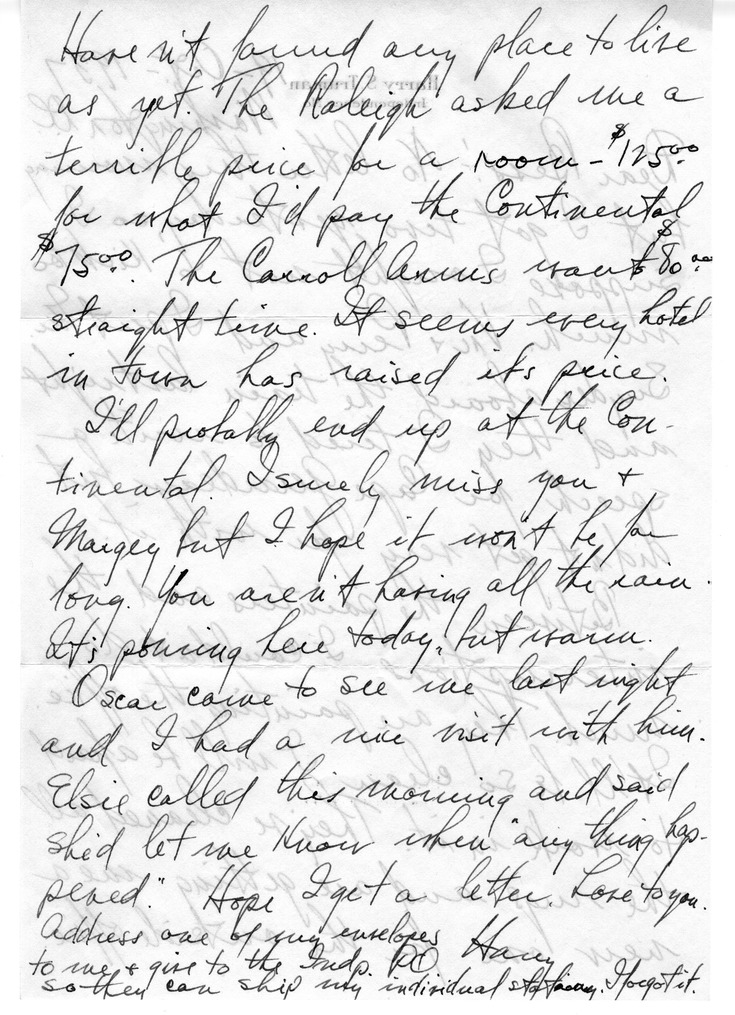 Haven't found any place to live
as yet. The Raleigh asked me a
terrible price for a room - $125.00
for what I'd pay the Continental
$75.00. The Carroll Arms want $80.00
straight time. It seems every hotel
in town has raised its price.
I'll probally end up at the Con-
tinental. I surely miss you +
Margey but I hope it won't be for
long. You aren't having all the rain.
It's pouring here today, but warm.
Oscar came to see me last night
and I had a nice visit with him.
Elsie called this morning and said
she'd let me know when "any thing hap-
pened." Hope I get a letter. Love to you.
Harry
Address one of my envelopes
to me + give to the Indp. PO
so they can ship my individual stationary. I forgot it.